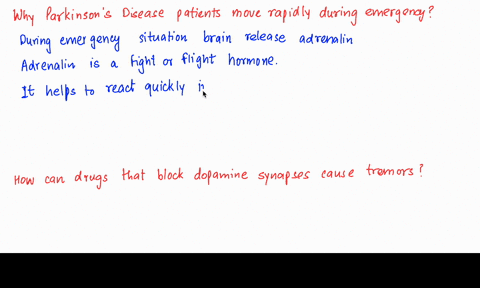 Why Parkinson's Disease patients move rapidly during emergency?
During emergency situation brain release adrenalin
Adrenalin is a fight or flight hormone.
It helps to react quickly i
How can drugs that block dopamine synapses cause tremors?